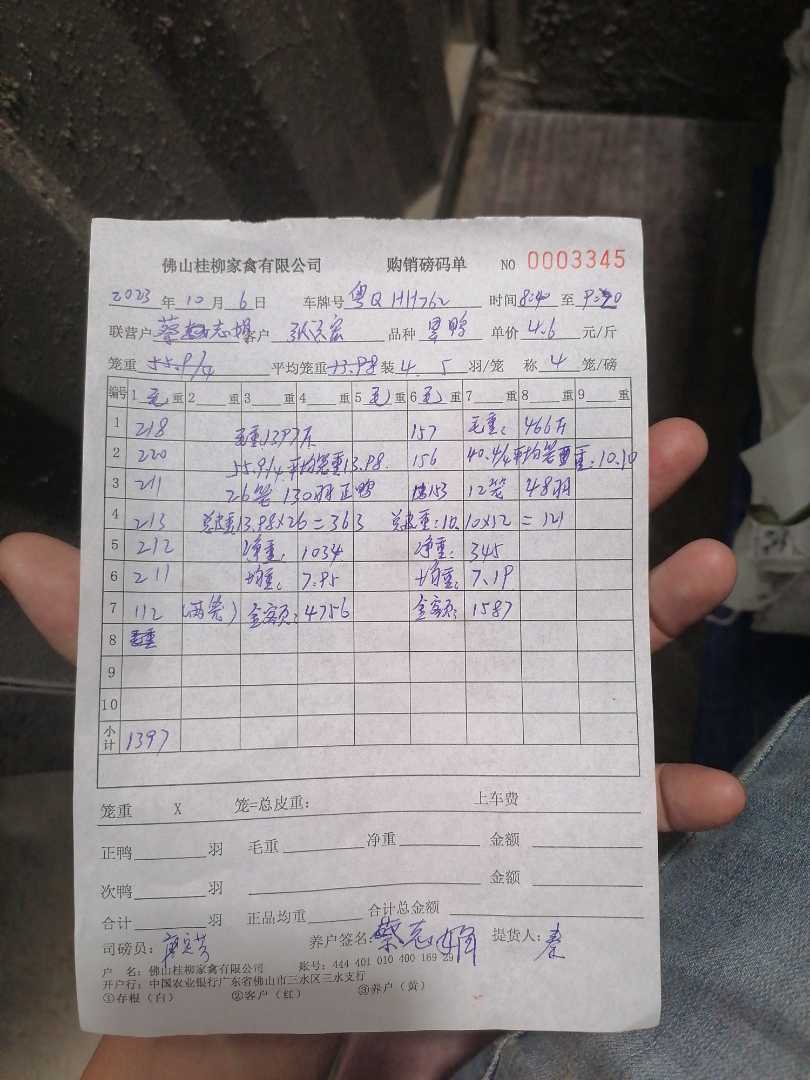 佛山桂柳家禽有限公司 购销磅码单 NO 0003345
2023年10月6日 车牌号 粤QHH762 时间8:40至9:20
联营户 蔡志娟 客户 品种 单价4.6元/斤
笼重 55.9/4 平均笼重13.98 装4.5羽/笼 称4笼/磅
编号 1毛重 2重 3重 4重 5毛重 6毛重 7重 8重 9重
1 218 毛重:1397斤 157 毛重: 466斤
2 220 55.9/4平均笼重13.98. 156 40.4/4平均笼重:10.10
3 211 26笼 130羽正鸭 153 12笼 48羽
4 213 总皮重13.98×26=363 总皮重:10.10×12=121
5 212 净重: 1034 净重: 345
6 211 均重: 7.95 均重: 7.19
7 112 (两笼) 金额: 4756 金额: 1587
8
9
10
小计 1397
笼重 X 笼=总皮重: 上车费
正鸭 羽 毛重 净重 金额
次鸭 羽 金额
合计 羽 正品均重 合计总金额
司磅员: 养户签名: 蔡志娟 提货人: 秦
户 名: 佛山桂柳家禽有限公司 账号: 444 401 010 400 169 29
开户行: 中国农业银行广东省佛山市三水区三水支行
①存根(白) ②客户(红) ③养户(黄)